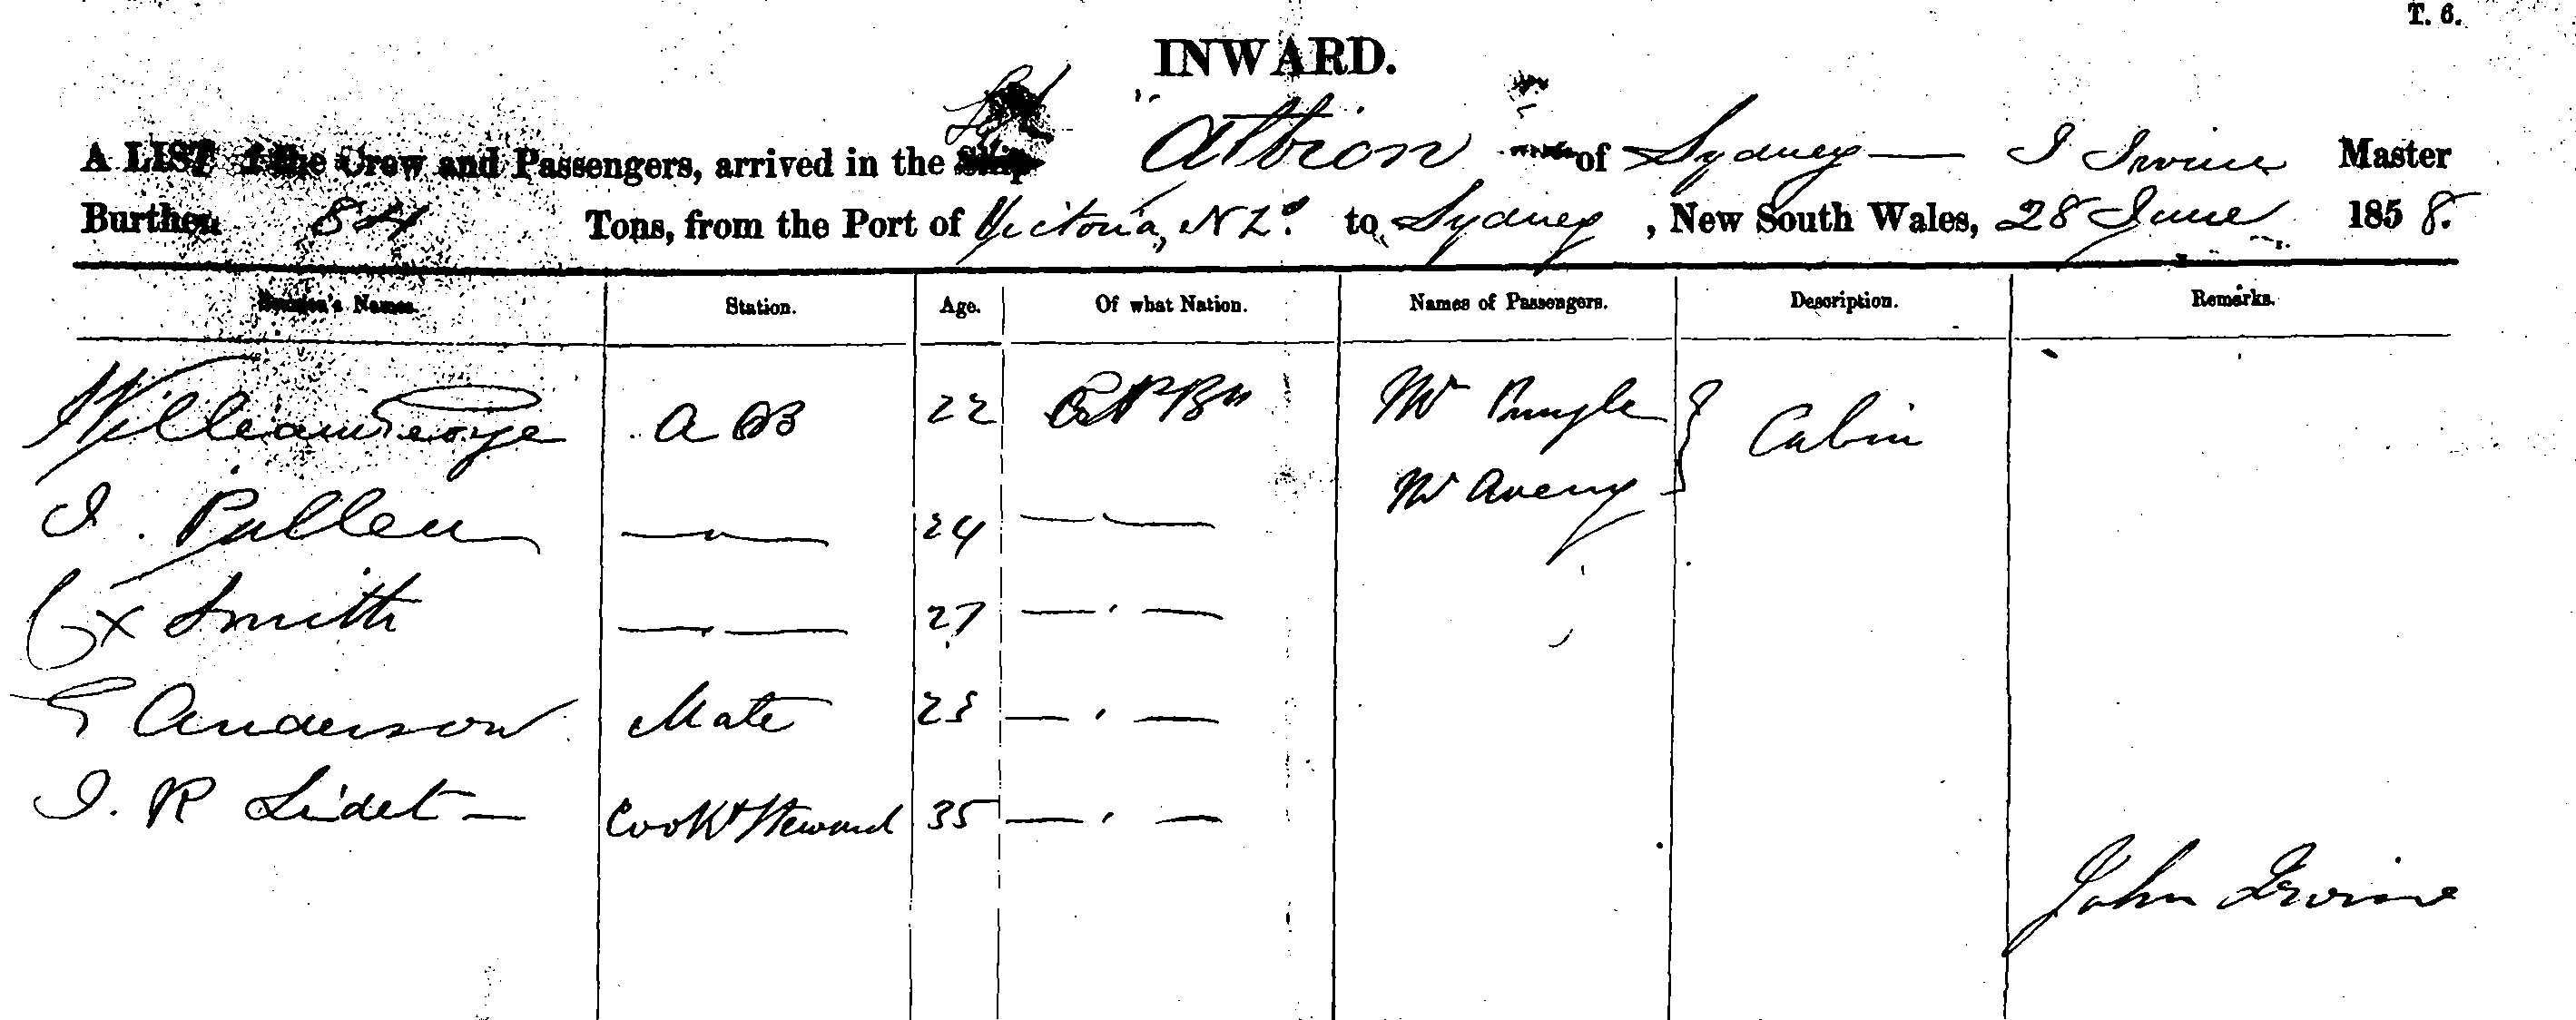 T. 6.
INWARD.
A LIST of the Crew and Passengers, arrived in the Ship Albion of Sydney — J Irvine Master
Burthen Tons, from the Port of Victoria, N Zd. to Sydney, New South Wales, 28 June 1858.
Seamen's Names. Station. Age. Of what Nation. Names of Passengers. Description. Remarks.
William George A B 22 Mr Pringle } Cabin
J. Pullen — 24 — Mr Avery
G x Smith — 27 —
Anderson Mate 23 —
J. R Lidet — Cook & Steward 35 —
John Irvine